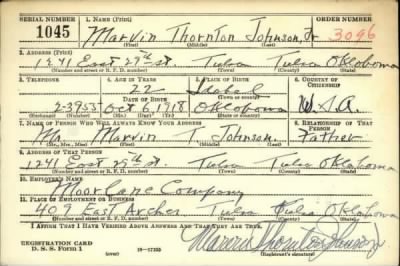 SERIAL NUMBER 1. NAME (Print) ORDER NUMBER
1045 Marvin Thornton Johnson, Jr 3096
(First) (Middle) (Last)
2. ADDRESS (Print)
1241 East 29th St. Tulsa Tulsa Oklahoma
(Number and street or R. F. D. number) (Town) (County) (State)
3. TELEPHONE 4. AGE IN YEARS 5. PLACE OF BIRTH 6. COUNTRY OF CITIZENSHIP
22 Idabel
(Town or county)
DATE OF BIRTH
2-3955 Oct 6, 1918 Oklahoma U.S.A.
(Exchange) (Number) (Mo.) (Day) (Yr.) (State or country)
7. NAME OF PERSON WHO WILL ALWAYS KNOW YOUR ADDRESS 8. RELATIONSHIP OF THAT PERSON
Mr. Marvin T. Johnson. Father
(Mr., Mrs., Miss) (First) (Middle) (Last)
9. ADDRESS OF THAT PERSON
1241 East 29th St. Tulsa Tulsa Oklahoma
(Number and street or R. F. D. number) (Town) (County) (State)
10. EMPLOYER'S NAME
Moorlane Company
11. PLACE OF EMPLOYMENT OR BUSINESS
409 East Archer Tulsa Tulsa Oklahoma
(Number and street or R. F. D. number) (Town) (County) (State)
I AFFIRM THAT I HAVE VERIFIED ABOVE ANSWERS AND THAT THEY ARE TRUE.
REGISTRATION CARD
D. S. S. FORM 1 (over) 16-17105 Marvin Thornton Johnson Jr
(Registrant's signature)